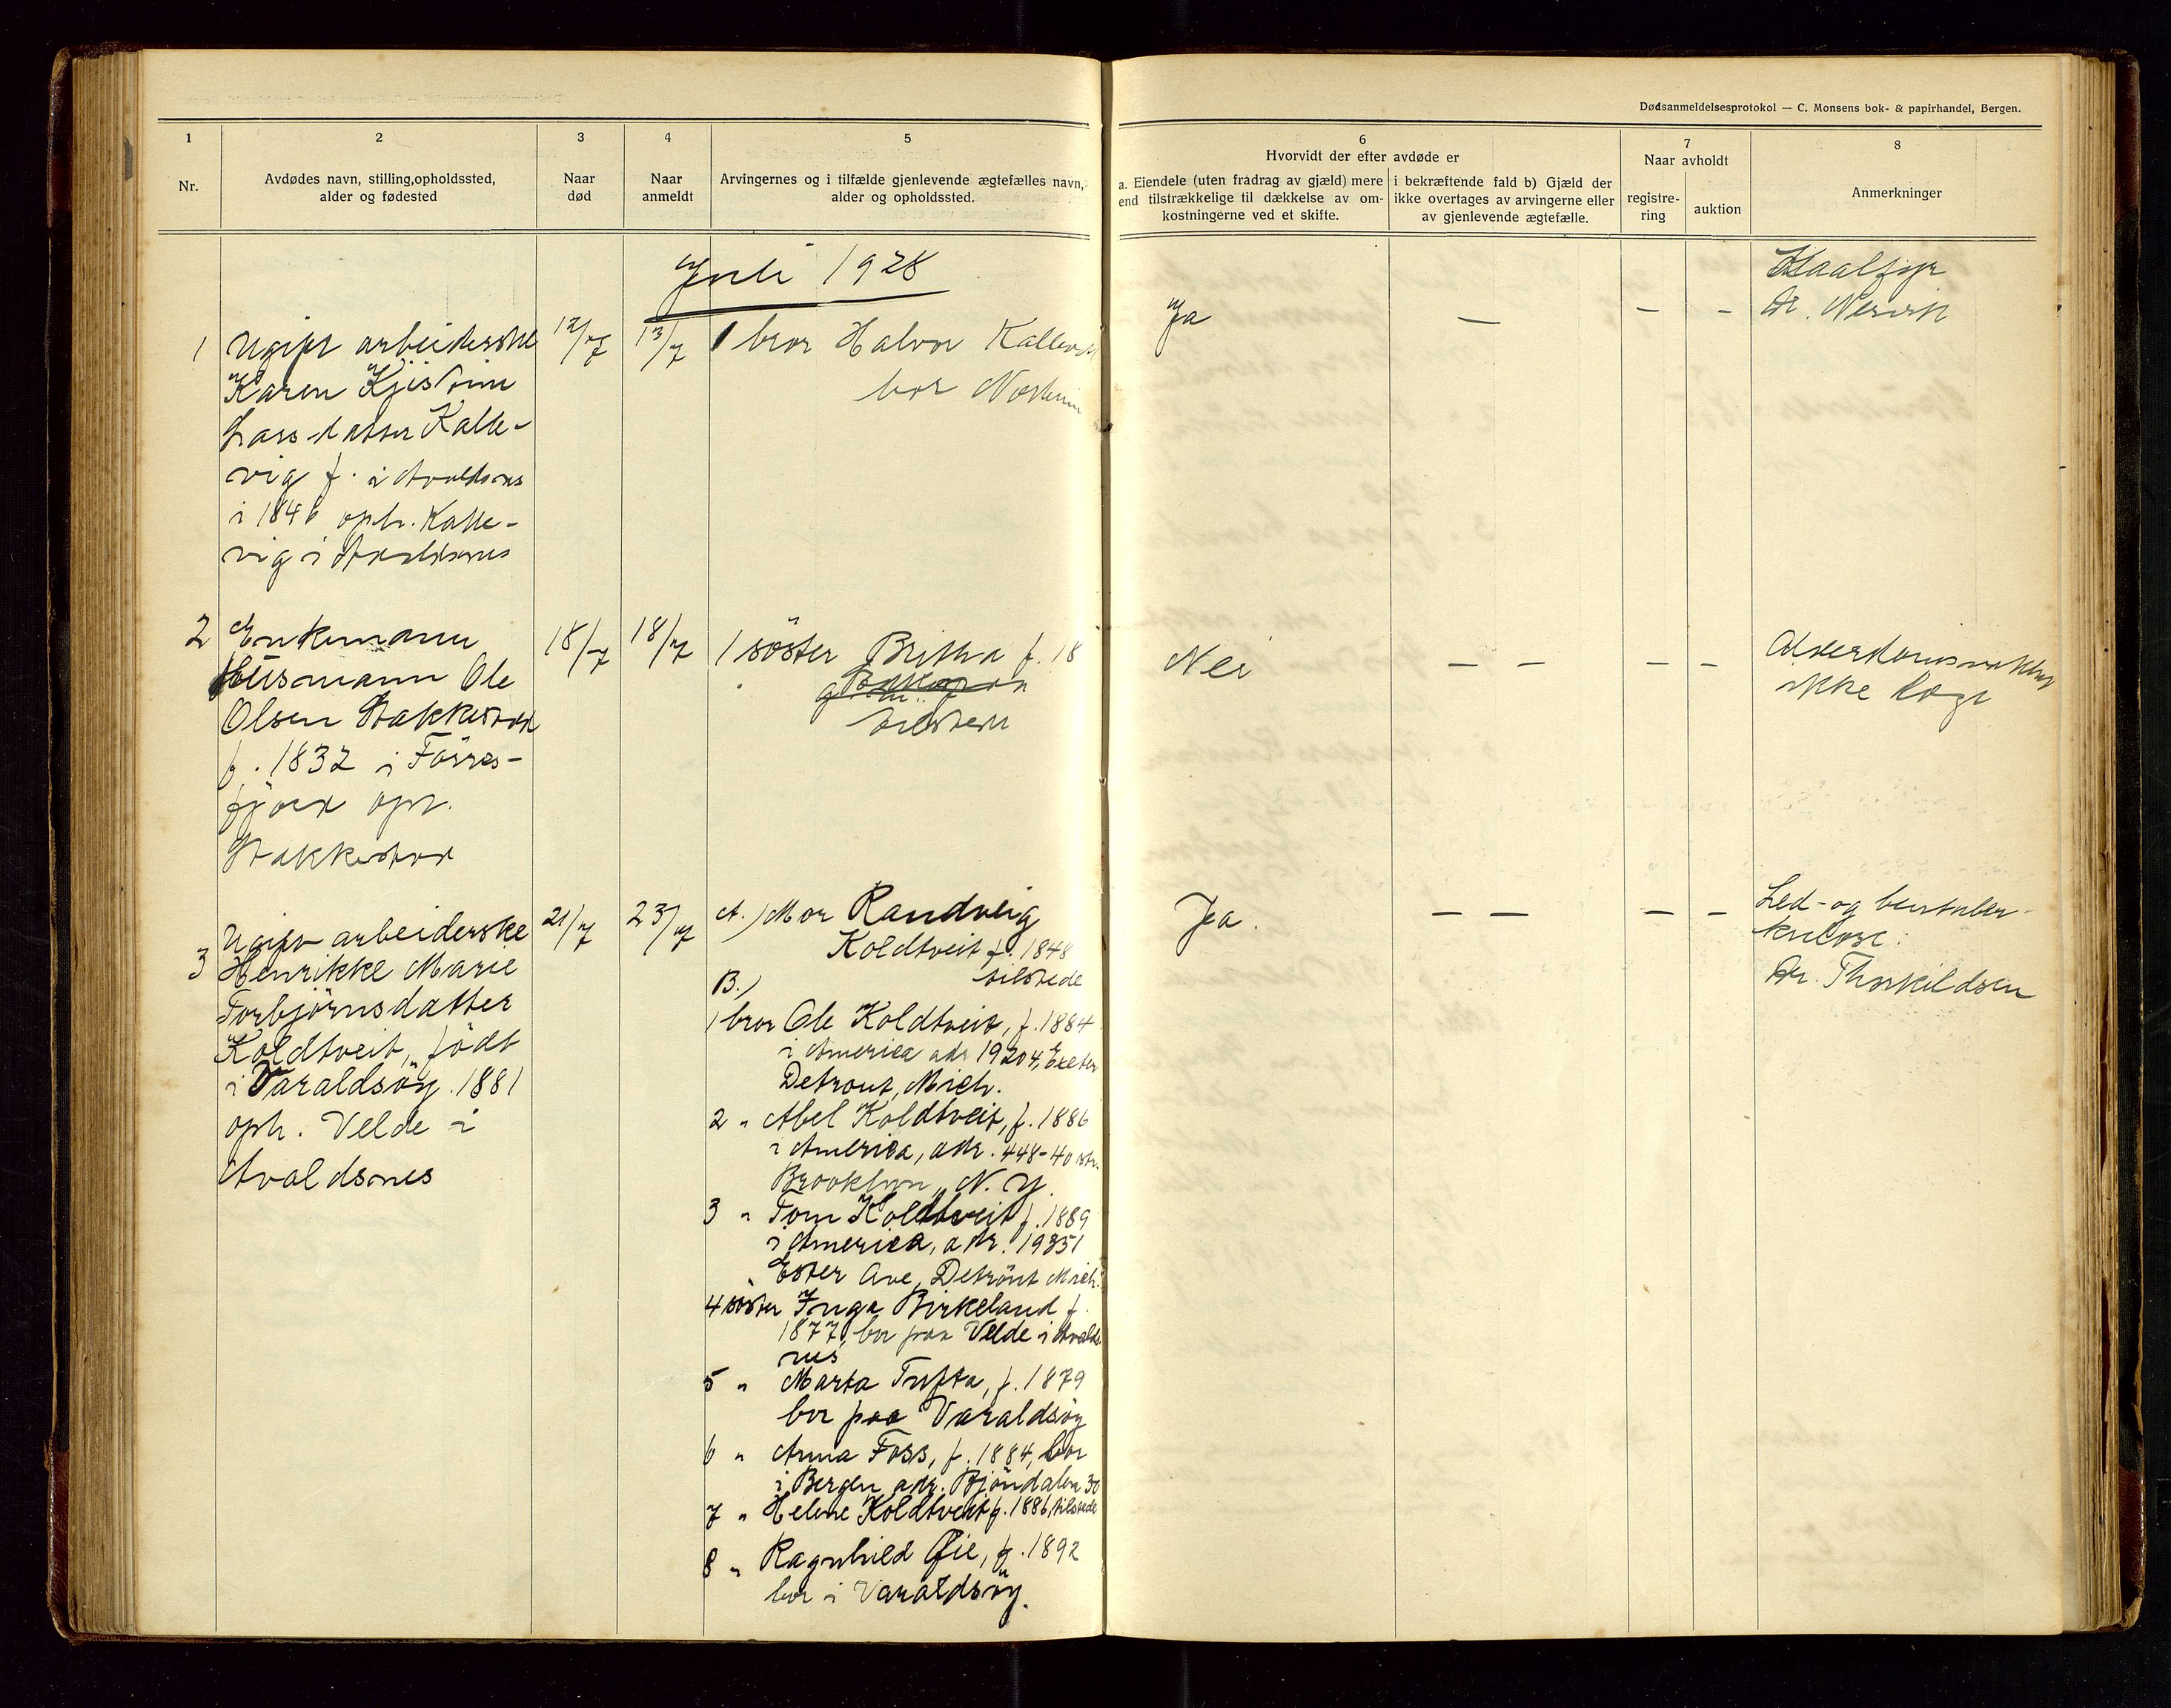 Dødsanmeldelsesprotokol — C. Monsens bok- & papirhandel, Bergen.
1
2
3
4
5
6
7
8
Nr.
Avdødes navn, stilling, opholdssted,
alder og fødested
Naar
død
Naar
anmeldt
Arvingernes og i tilfælde gjenlevende ægtefælles navn,
alder og opholdssted.
Hvorvidt der efter avdøde er
a. Eiendele (uten fradrag av gjæld) mere
end tilstrækkelige til dækkelse av om-
kostningerne ved et skifte.
i bekræftende fald b) Gjæld der
ikke overtages av arvingerne eller
av gjenlevende ægtefælle.
Naar avholdt
registre-
ring
auktion
Anmerkninger
Juli 1928
1
Ugift arbeiderske
Karen Kjistine
Larsdatter Kalle-
vig f. i Avaldsnes
i 1846 oph. Kalle-
vig i Avaldsnes
12/7
13/7
1 bror Halvor Kallevik
bor
Ja
—
— —
Dr. Nesvik
2
Enkemann
Husmann Ole
Olsen Stakkestad
f. 1832 i Förres-
fjord oph.
Stakkestad
18/7
18/7
1 söster Britha f. 18
tilsted
Nei
— —
— —
Alderdomssvakhet
ikke læge
3
Ugift arbeiderske
Henrikke Marie
Torbjörnsdatter
Koldtveit, födt
i Varaldsöy 1881
oph. Velde i
Avaldsnes
21/7
23/7
A.) Mor Randveig
Koldtveit f. 1848
tilstede
B.)
1 bror Ole Koldtveit, f. 1884
i America adr 19204, Exeter
Detrout, Mich.
2 " Abel Koldtveit, f. 1886
i America, adr. 448-40 str.
Brooklyn, N. Y.
3 " Tom Koldtveit f. 1889
i America, adr. 19351
Ester Ave, Detröut Mich.
4 söster Inga Birkeland f.
1877, bor paa Velde i Avalds-
nes
5 " Marta Tufta, f. 1879
bor paa Varaldsöy
6 " Anna Foss, f. 1884, bor
i Bergen adr. Bjöndalen 30
7 " Helene Koldtveit f. 1886, tilstede
8 " Ragnhild Øie, f. 1892
bor i Varaldsöy.
Ja.
— —
— —
Led- og bentuber-
kulose.
Dr. Thorkildsen